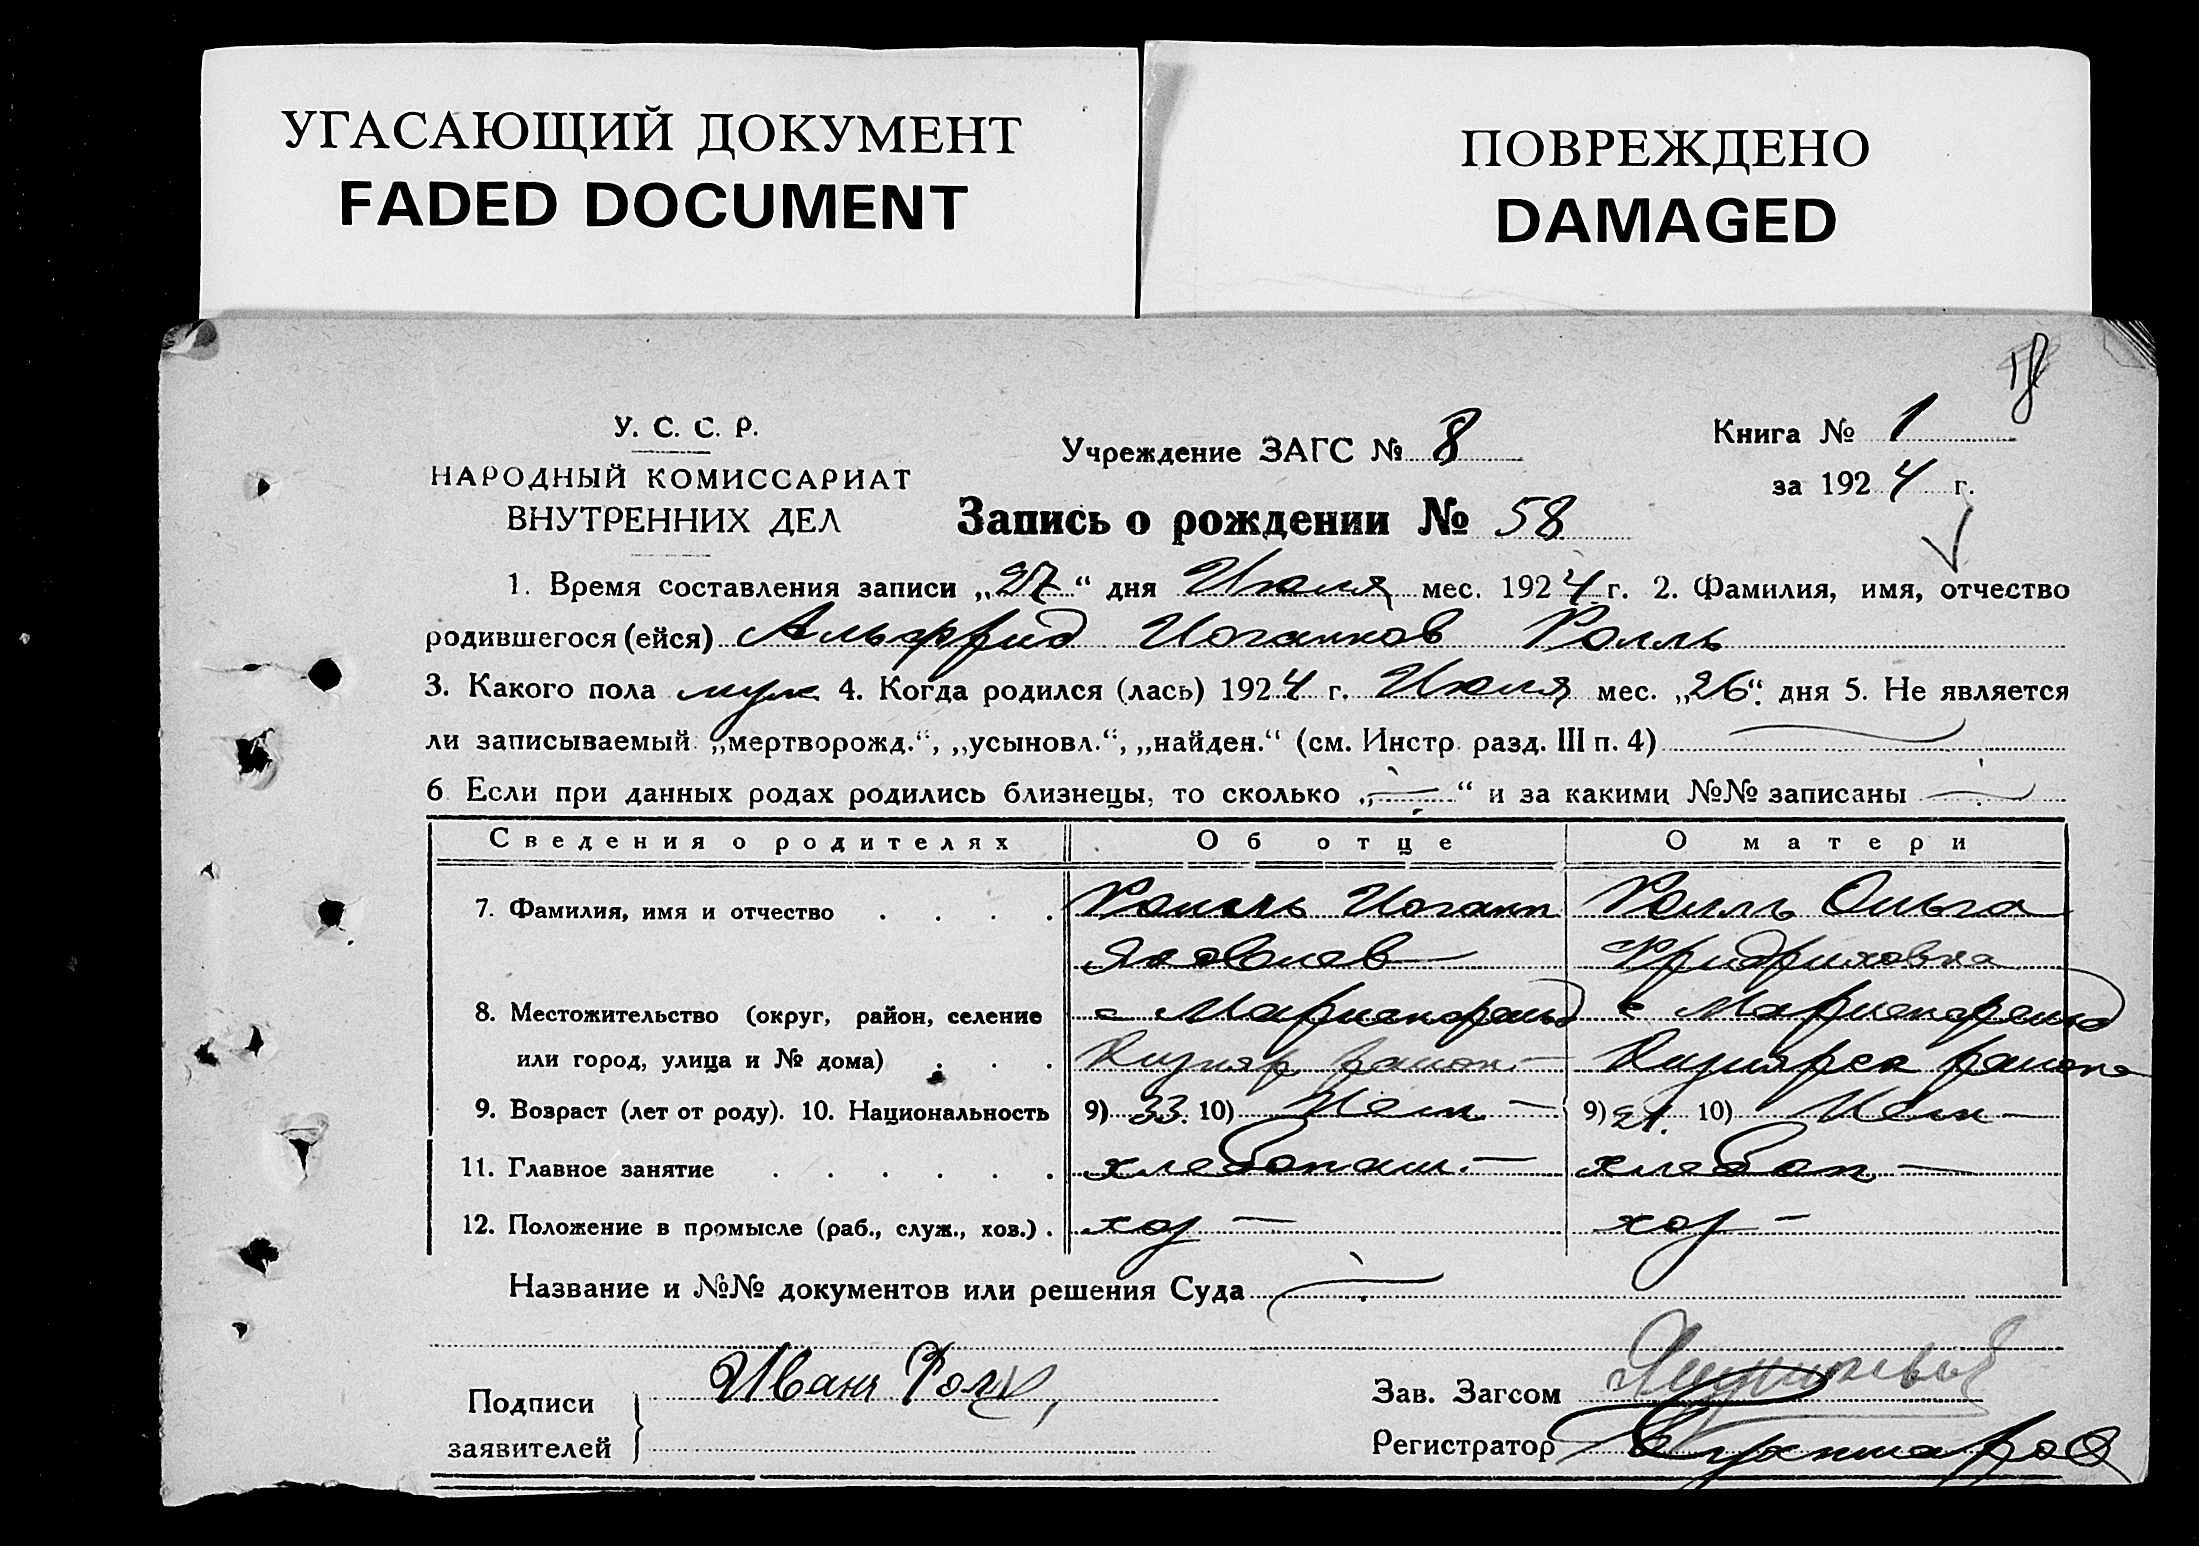 УГАСАЮЩИЙ ДОКУМЕНТ
FADED DOCUMENT
ПОВРЕЖДЕНО
DAMAGED
У. С. С. Р.
НАРОДНЫЙ КОМИССАРИАТ
ВНУТРЕННИХ ДЕЛ
Учреждение ЗАГС № 8
Книга № 1
за 1924 г.
Запись о рождении № 58
1. Время составления записи „27“ дня Июля мес. 1924 г. 2. Фамилия, имя, отчество
родившегося (ейся) Альфрид Иоганнов Ролль
3. Какого пола муж 4. Когда родился (лась) 1924 г. Июля мес. „26“ дня 5. Не является
ли записываемый „мертворожд.“, „усыновл.“, „найден.“ (см. Инстр. разд. III п. 4)
6 Если при данных родах родились близнецы, то сколько „—“ и за какими №№ записаны —
Сведения о родителях Об отце О матери
7. Фамилия, имя и отчество . . . . Ролль Иоганн Ролль Ольга
Яковлев Фридриховна
8. Местожительство (округ, район, селение с Мариенфельд с Мариенфельд
или город, улица и № дома) . . . район
9. Возраст (лет от роду). 10. Национальность 9) 33. 10) Нем — 9) 21. 10) Нем —
11. Главное занятие . . . . . . хлебопаш. — хлебоп —
12. Положение в промысле (раб., служ., хоз.) . хоз — хоз —
Название и №№ документов или решения Суда —
Подписи
заявителей
Иван Ролл
Зав. Загсом
Регистратор